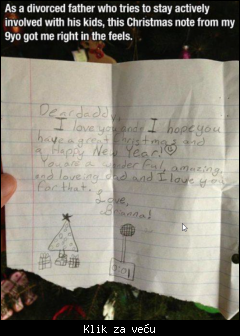 As a divorced father who tries to stay actively
involved with his kids, this Christmas note from my
9yo got me right in the feels.
Dear daddy,
I love you and I hope you
have a great christmas and
a Happy New Year!
You are a wonderful, amazing,
and loveing dad and I love you
for that.
Love,
Brianna!
Klik za veću